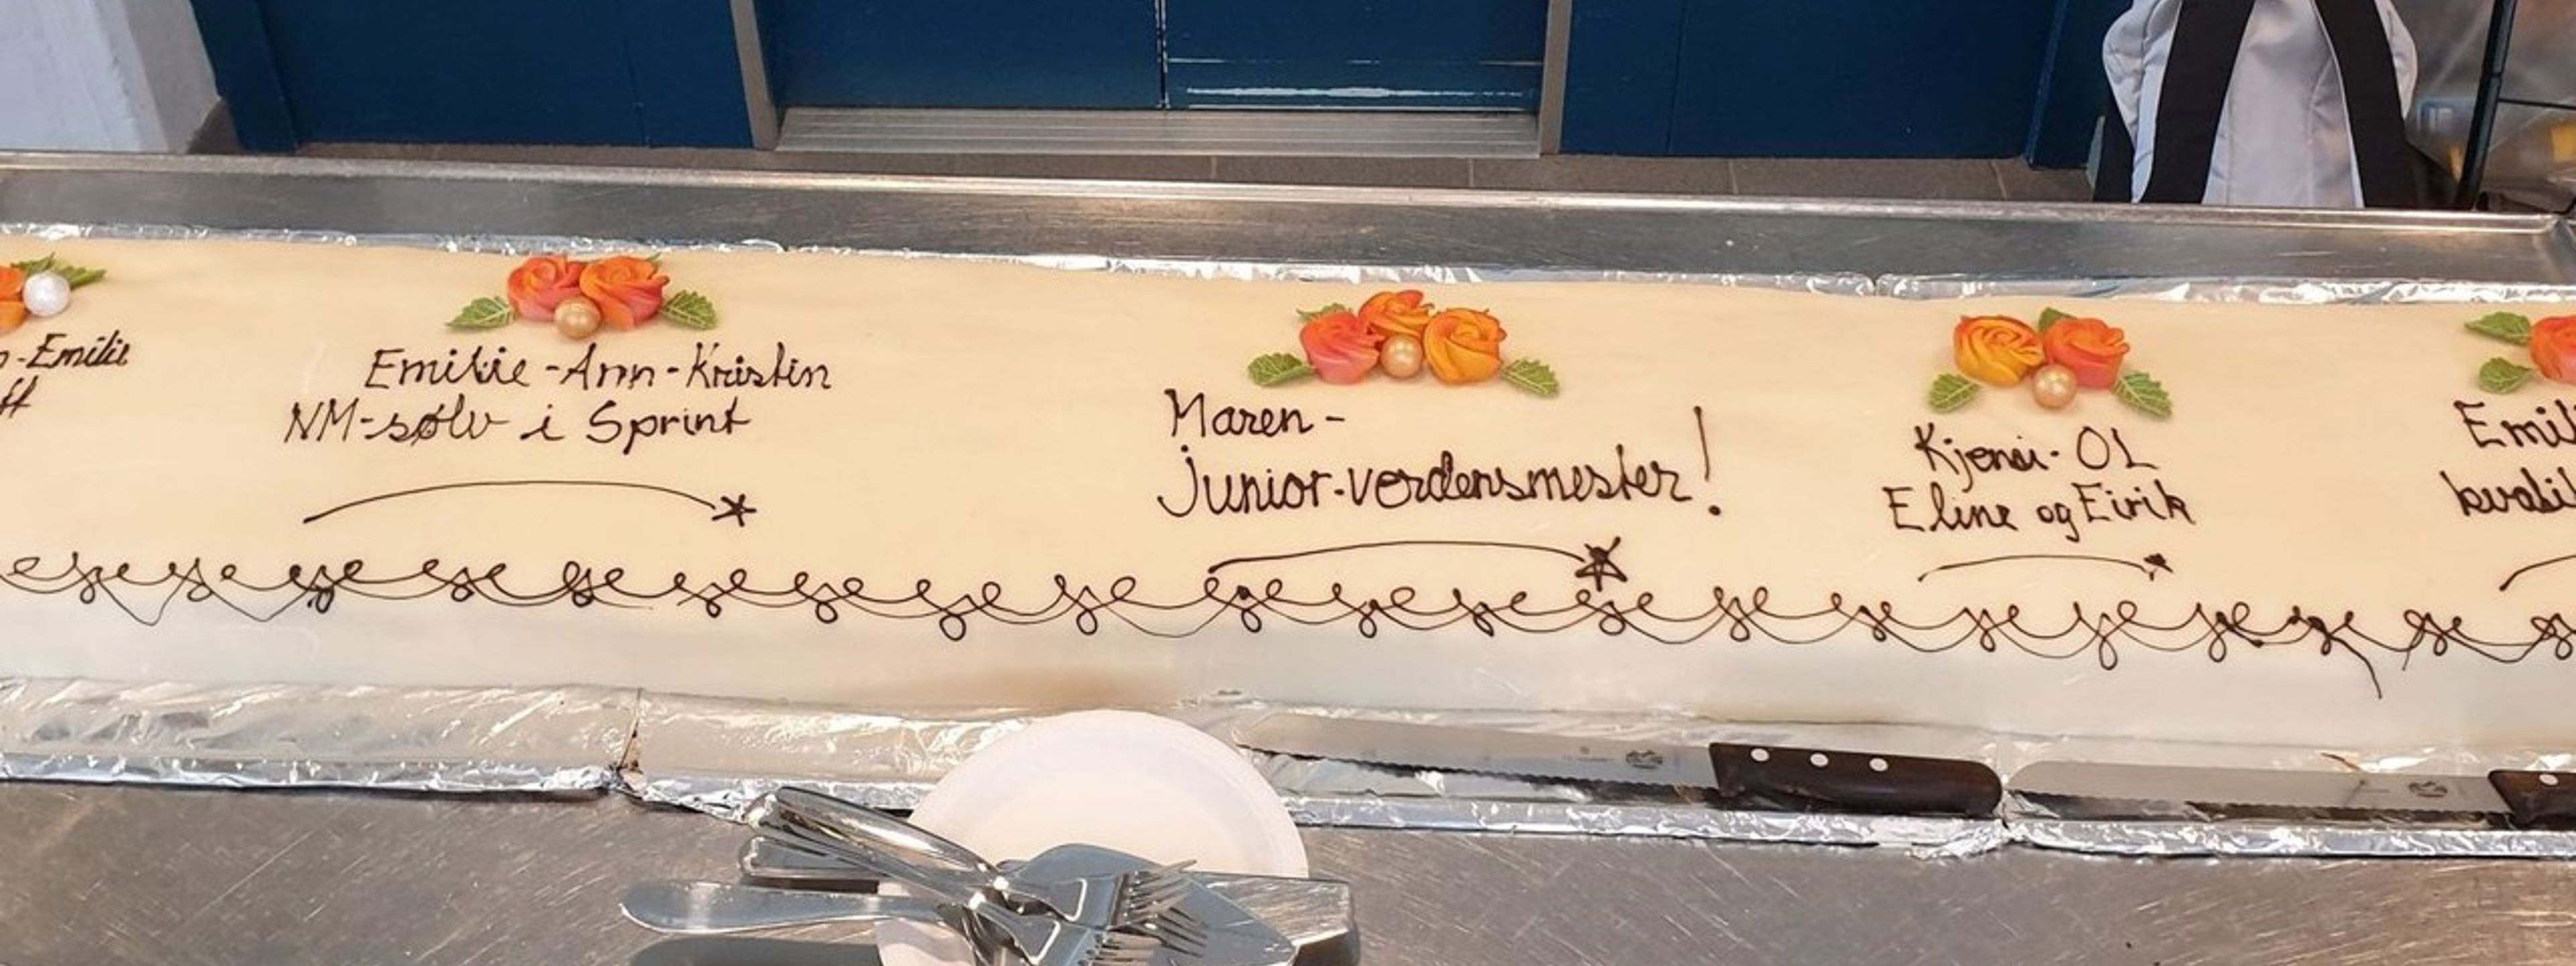 -Emilie
Emilie-Ann-Kristin
NM-sølv i Sprint
Maren-
Junior-verdensmester!
Kjensi-OL
Eline og Eirik